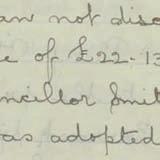 an not disc
e of £22-13
ncillor Smit
was adopted